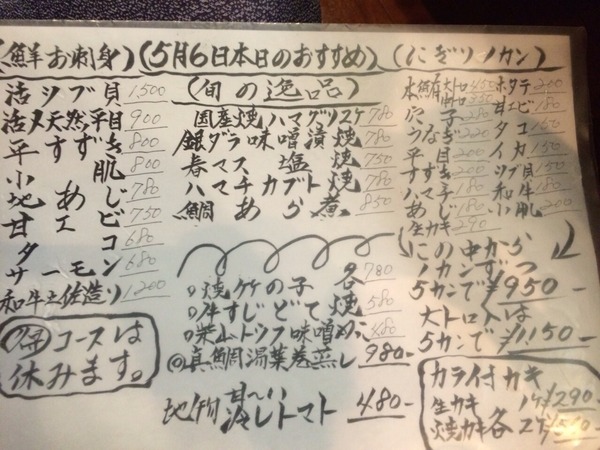 (鮮お刺身)
活ツブ貝 1,500
活〆天然平目 900
平すずき 800
小肌 800
地あじ 780
甘エビ 750
タコ 680
サーモン 680
和牛土佐造り 1200
コースは
休みます。
(5月6日本日のおすすめ)
(旬の逸品)
国産焼ハマグリ2ケ 780
銀ダラ味噌漬焼 780
春マス塩焼 750
ハマチカブト焼 780
鯛あら煮 850
焼竹の子 各 780
牛すじどて焼 580
味噌 480
◎真鯛湯葉巻蒸し 980-
甘〜い
冷しトマト 480-
(にぎり1カン)
本鮪大トロ 450
中トロ 350
穴子 280
うなぎ 200
平目 200
すずき 180
ハマチ 180
あじ 180
生カキ 290
ホタテ 200
甘エビ 180
タコ 150
イカ 150
ツブ貝 180
和牛 180
小肌 200
この中から
1カンずつ
5カンで¥950-
大トロ入は
5カンで¥1,150-
カラ付カキ
生カキ 1ケ¥290-
焼カキ各2ケ¥560-